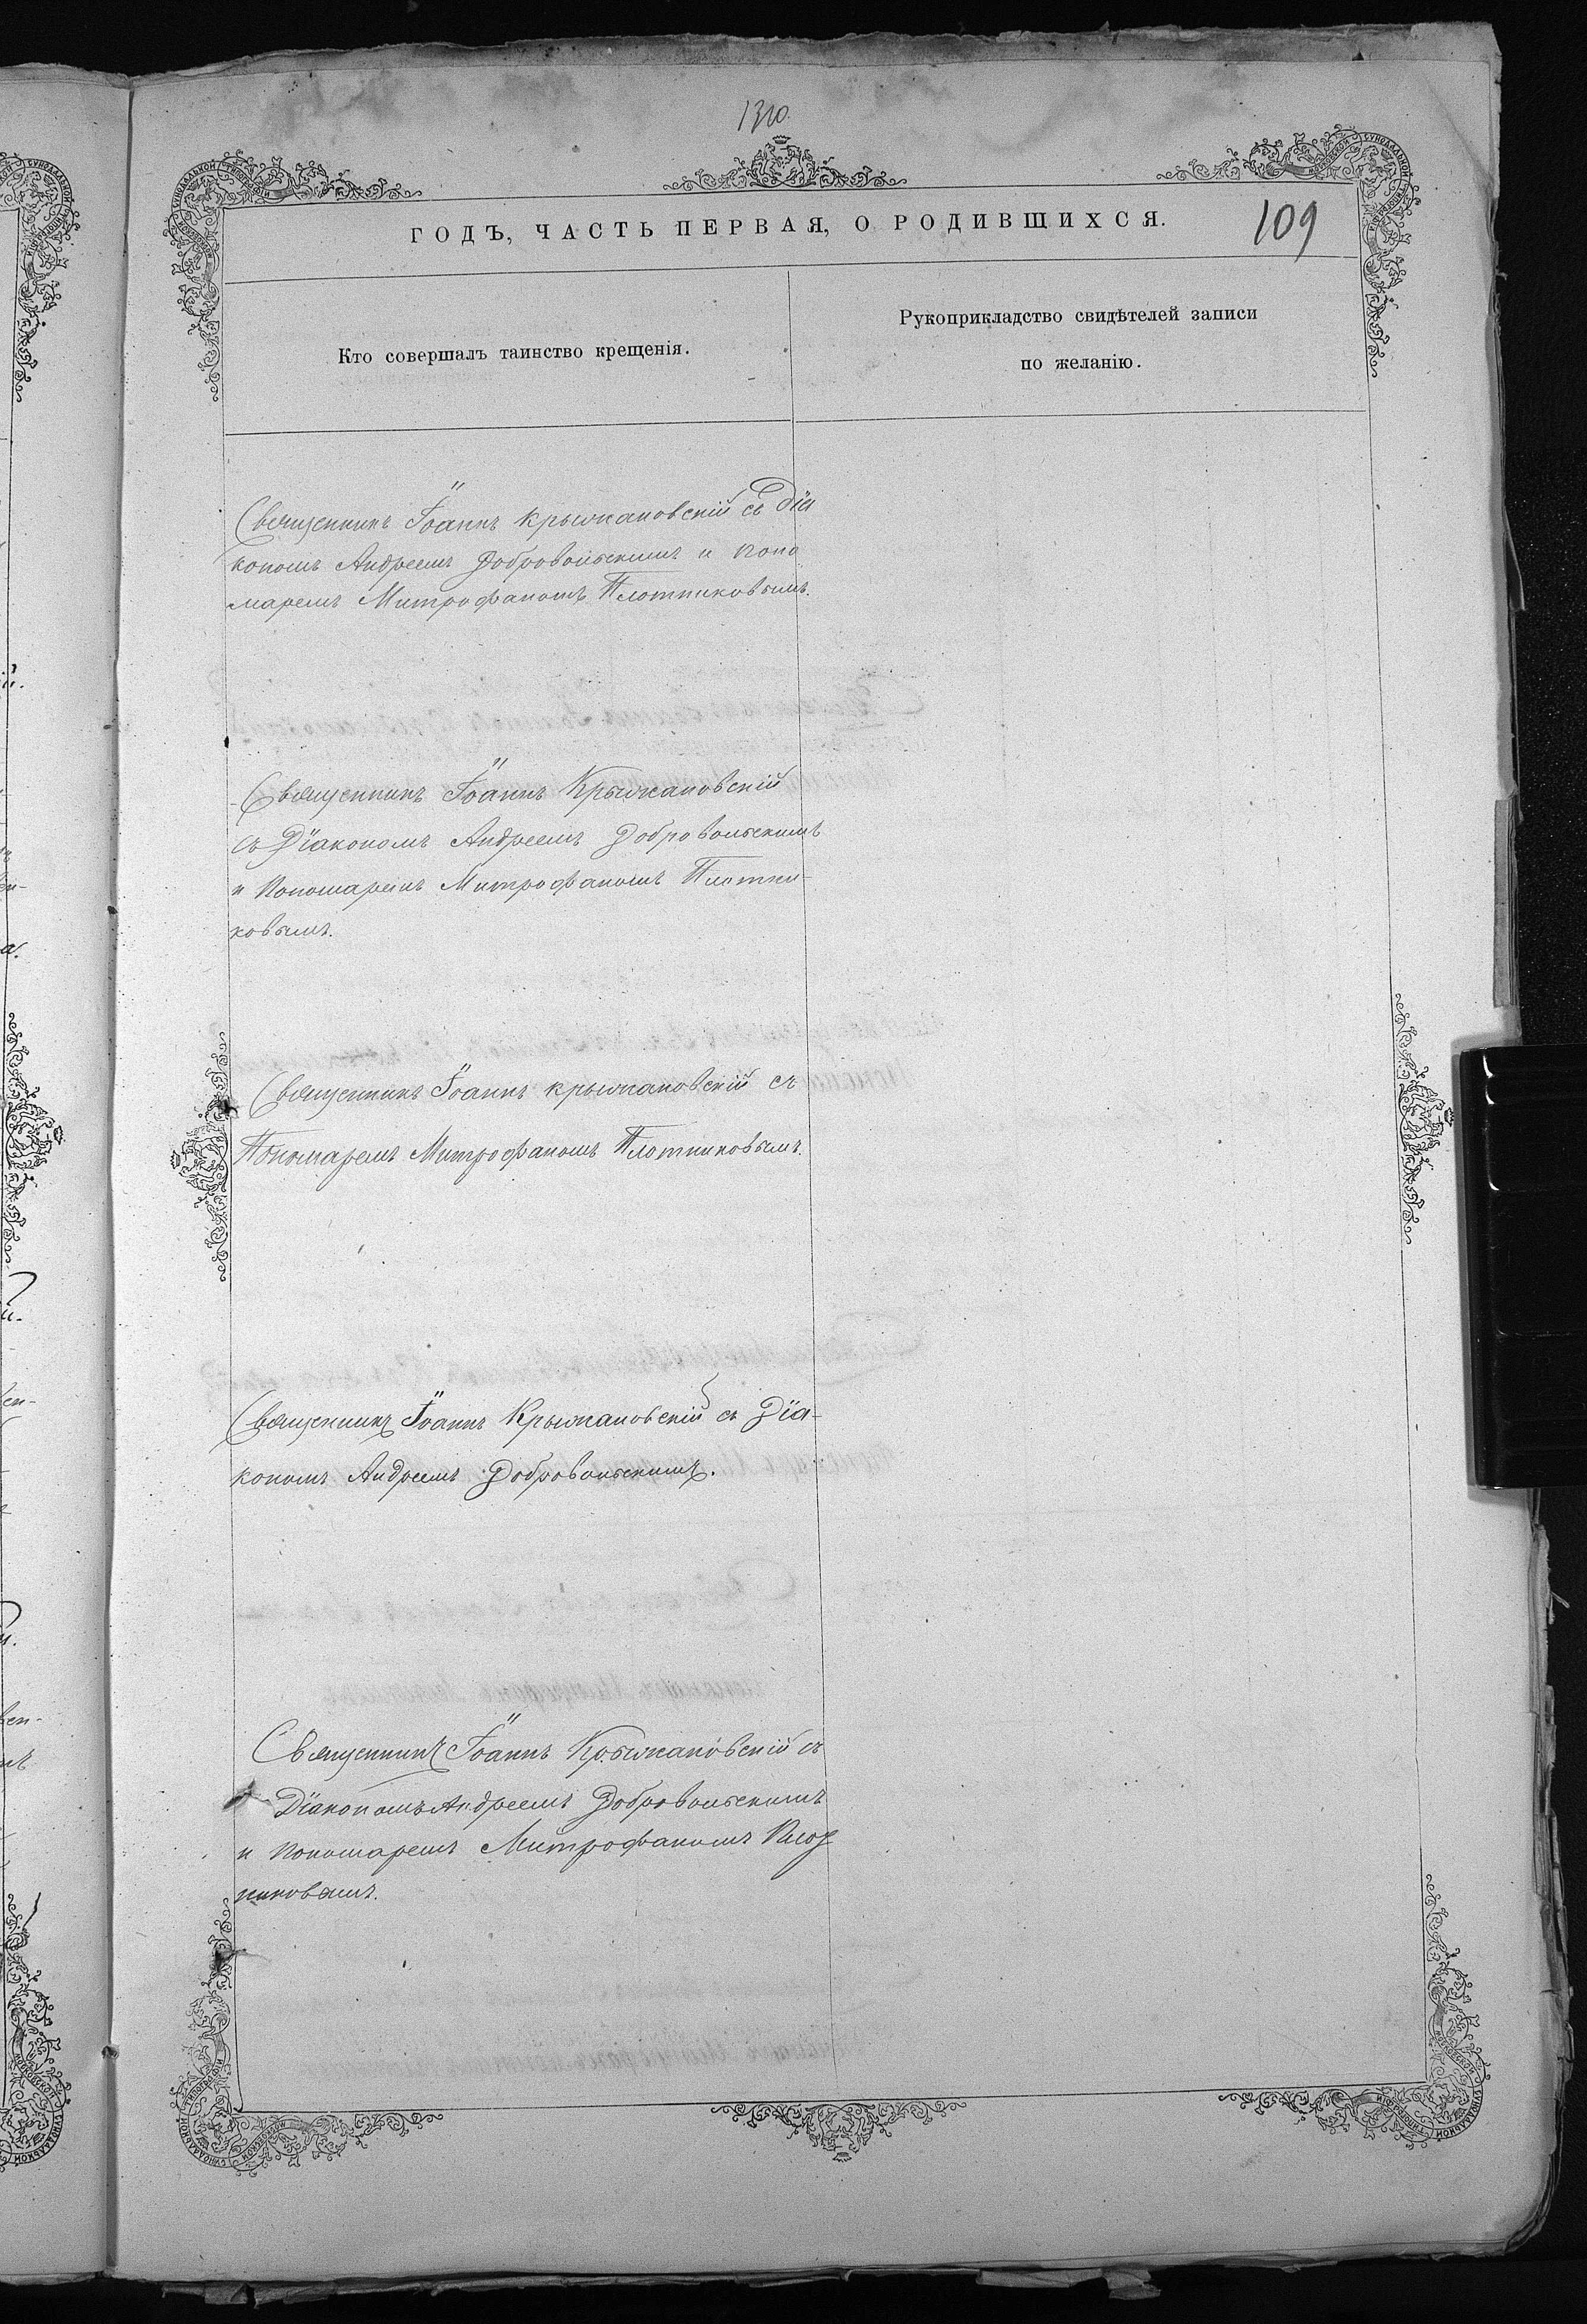 1310.
109
ГОДЪ, ЧАСТЬ ПЕРВАЯ, О РОДИВШИХСЯ.
Кто совершалъ таинство крещенія.
Рукоприкладство свидѣтелей записи
по желанію.
Священникъ Іоаннъ Крыжановскій съ Діа
кономъ Андреемъ Добровольскимъ и Поно
маремъ Митрофаномъ Плотниковымъ.
Священникъ Іоаннъ Крыжановскій
съ Діакономъ Андреемъ Добровольскимъ
и Пономаремъ Митрофаномъ Плотни-
ковымъ.
Священникъ Іоаннъ Крыжановскій съ
Пономаремъ Митрофаномъ Плотниковымъ.
Священникъ Іоаннъ Крыжановскій съ Діа-
кономъ Андреемъ Добровольскимъ.
Священникъ Іоаннъ Крыжановскій съ
Діакономъ Андреемъ Добровольскимъ
и Пономаремъ Митрофаномъ Плот
никовымъ.